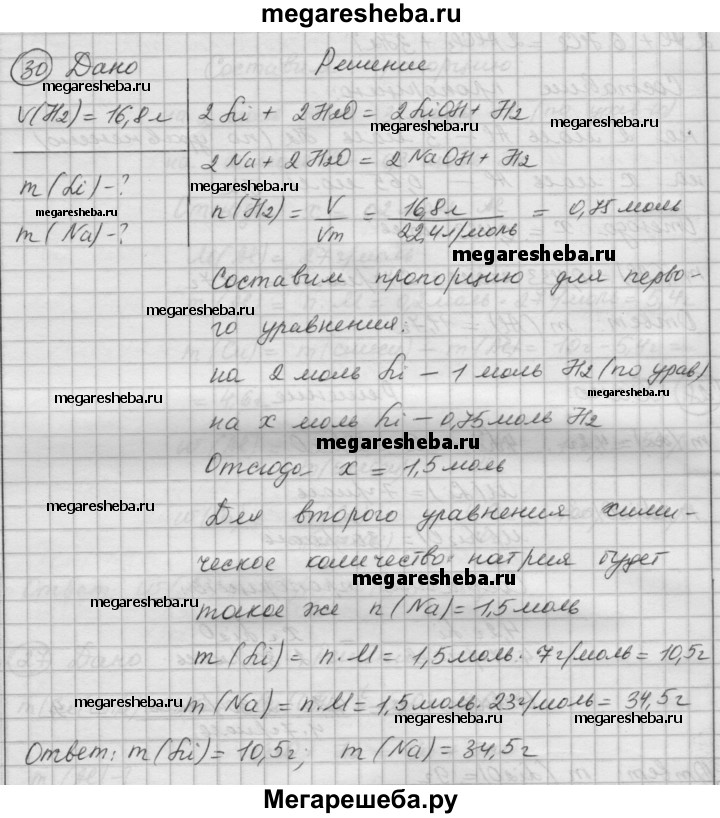 megaresheba.ru
30 Дано Решение
megaresheba.ru
V(H2) = 16,8 л 2Li + 2H2O = 2LiOH + H2
megaresheba.ru
2Na + 2H2O = 2NaOH + H2
megaresheba.ru
m(Li) - ?
megaresheba.ru
m(Na) - ?
n(H2) = V/Vm = 16,8 л/22,4 л/моль = 0,75 моль
megaresheba.ru
Составим пропорцию для перво-
megaresheba.ru
го уравнения:
на 2 моль Li - 1 моль H2 (по урав)
megaresheba.ru
megaresheba.ru
на x моль Li - 0,75 моль H2
megaresheba.ru
Отсюда x = 1,5 моль
megaresheba.ru
Для второго уравнения хими-
ческое количество натрия будет
megaresheba.ru
megaresheba.ru
такое же n(Na) = 1,5 моль
m(Li) = n·M = 1,5 моль · 7 г/моль = 10,5 г
megaresheba.ru
m(Na) = n·M = 1,5 моль · 23 г/моль = 34,5 г
megaresheba.ru
megaresheba.ru
Ответ: m(Li) = 10,5 г; m(Na) = 34,5 г
Мегарешеба.ру